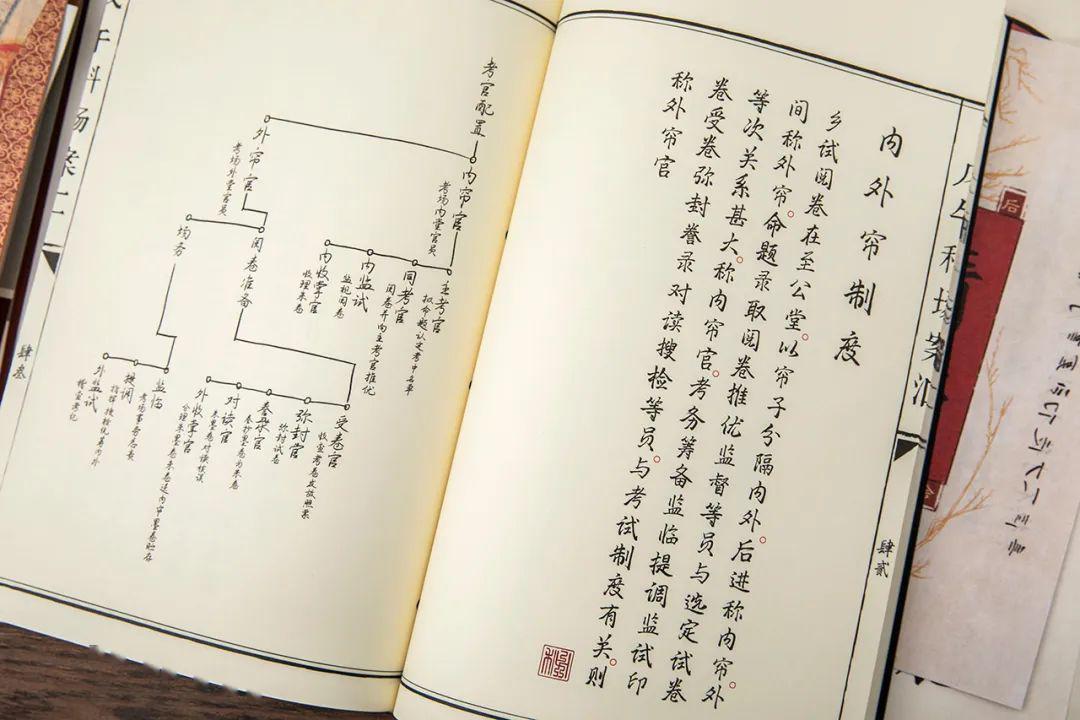 内外帘制度
乡试阅卷在至公堂。以帘子分隔内外。后进称内帘。外
间称外帘。命题录取阅卷推优监督等员与选定试卷
等次关系甚大。称内帘官。考务筹备监临提调监试印
卷受卷弥封誊录对读搜检等员。与考试制度有关。则
称外帘官
肆贰
考官配置
内帘官
考场内堂官员
主考官
拟命题认定考中名单
同考官
阅卷并向主考官推优
内监试
监视阅卷
内收掌官
收理朱卷
外帘官
考场外堂官员
阅卷准备
受卷官
收查考卷发放照票
弥封官
弥封试卷
誊录官
朱抄墨卷为朱卷
对读官
朱墨卷对读核误
外收掌官
场务
监临
考场事务总负
提调
外监试
稽查考纪
肆叁